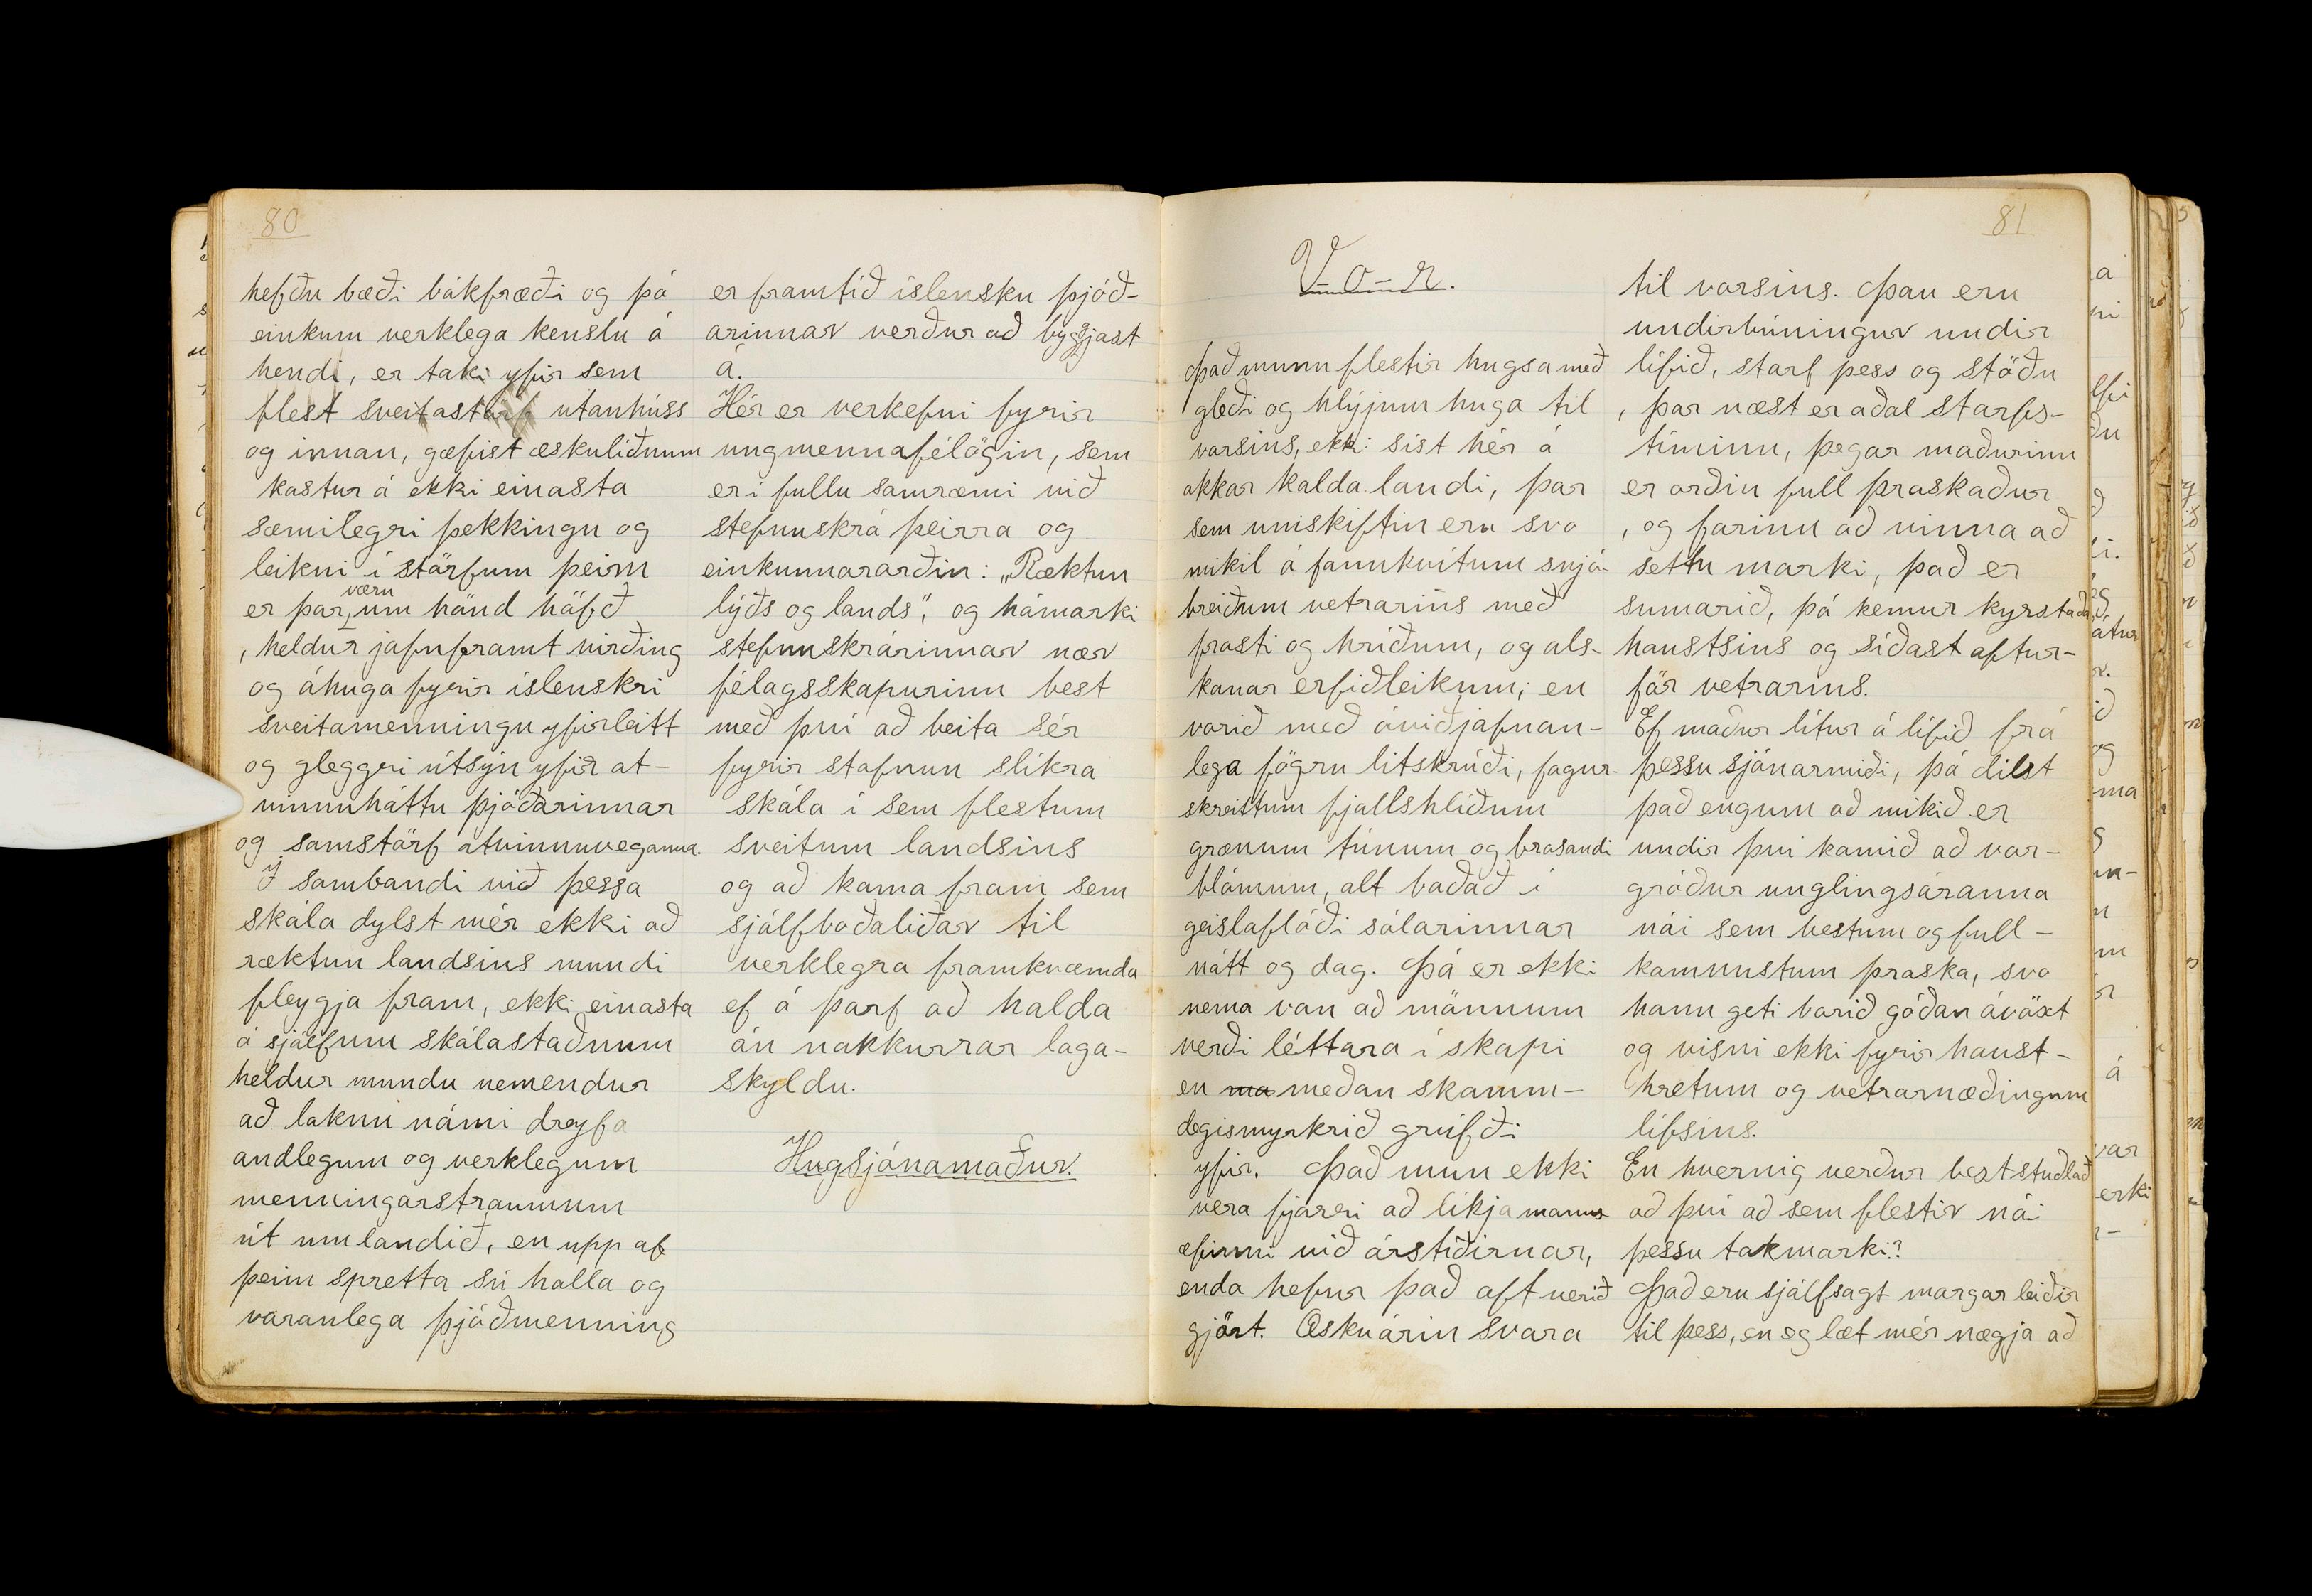 80
hefðu bæði bókfræði og þó
einkum verklega kenslu á
hendi, er taki yfir sem
flest sveitastörf utanhúss
og innan, gæfist æskuliðnum
kostur á ekki einasta
sæmilegri þekkingu og
leikni í störfum þeim
er þar væru um hönd höfð
, heldur jafnframt virðing
og áhuga fyrir íslenskri
sveitamenningu yfirleitt
og gleggri útsýn yfir at-
vinnuháttu þjóðarinnar
og samstörf atvinnuveganna.
Í sambandi við þessa
skóla dylst mér ekki að
ræktun landsins mundi
fleygja fram, ekki einasta
á sjálfum skólastaðnum
heldur mundu nemendur
að loknu námi dreyfa
andlegum og verklegum
menningarstraumum
út um landið, en upp af
þeim spretta sú holla og
varanlega þjóðmenning
er framtíð íslensku þjóð-
arinnar verður að byggjast
á.
Hér er verkefni fyrir
ungmennafélögin, sem
er í fullu samræmi við
stefnuskrá þeirra og
einkunnarorðin: „Ræktun
lýðs og lands", og hámarki
stefnuskrárinnar nær
félagsskapurinn best
með því að beita sér
fyrir stofnun slíkra
skóla í sem flestum
sveitum landsins
og að koma fram sem
sjálfboðaliðar til
verklegra framkvæmda
ef á þarf að halda
án nokkurrar laga-
skyldu.
Hugsjónamaður.
81
V-o-r.
Það munu flestir hugsa með
gleði og hlýjum huga til
vorsins, ekki síst hér á
okkar kalda landi, þar
sem umskiftin eru svo
mikil á fannhvítum snjó-
breiðum vetrarins með
frosti og hríðum, og als-
konar erfiðleikum; en
vorið með óviðjafnan-
lega fögru litskrúði, fagur-
skreittum fjallshlíðum
grænum túnum og brosandi
blómum, alt baðað í
geislaflóði sólarinnar
nótt og dag. Þá er ekki
nema von að mönnum
verði léttara í skapi
en ma meðan skamm-
degismyrkrið grúfði
yfir. Það mun ekki
vera fjærri að líkja manns
æfinni við árstíðirnar,
enda hefur það oft verið
gjört. Æskuárin svara
til vorsins. Þau eru
undirbúningur undir
lífið, starf þess og stöðu
, þar næst er aðal starfs-
tíminn, þegar maðurinn
er orðin full þroskaður
, og farinn að vinna að
settu marki, það er
sumarið, þá kemur kyrstaða
haustsins og síðast aftur-
för vetrarins.
Ef maður lítur á lífið frá
þessu sjónarmiði, þá dilst
það engum að mikið er
undir því komið að vor-
gróður unglingsáranna
nái sem bestum og full-
komnustum þroska, svo
hann geti borið góðan ávöxt
og visni ekki fyrir haust-
hretum og vetrarnæðingum
lífsins.
En hvernig verður best stuðlað
að því að sem flestir nái
þessu takmarki?
Það eru sjálfsagt margar leiðir
til þess, en eg læt mér nægja að